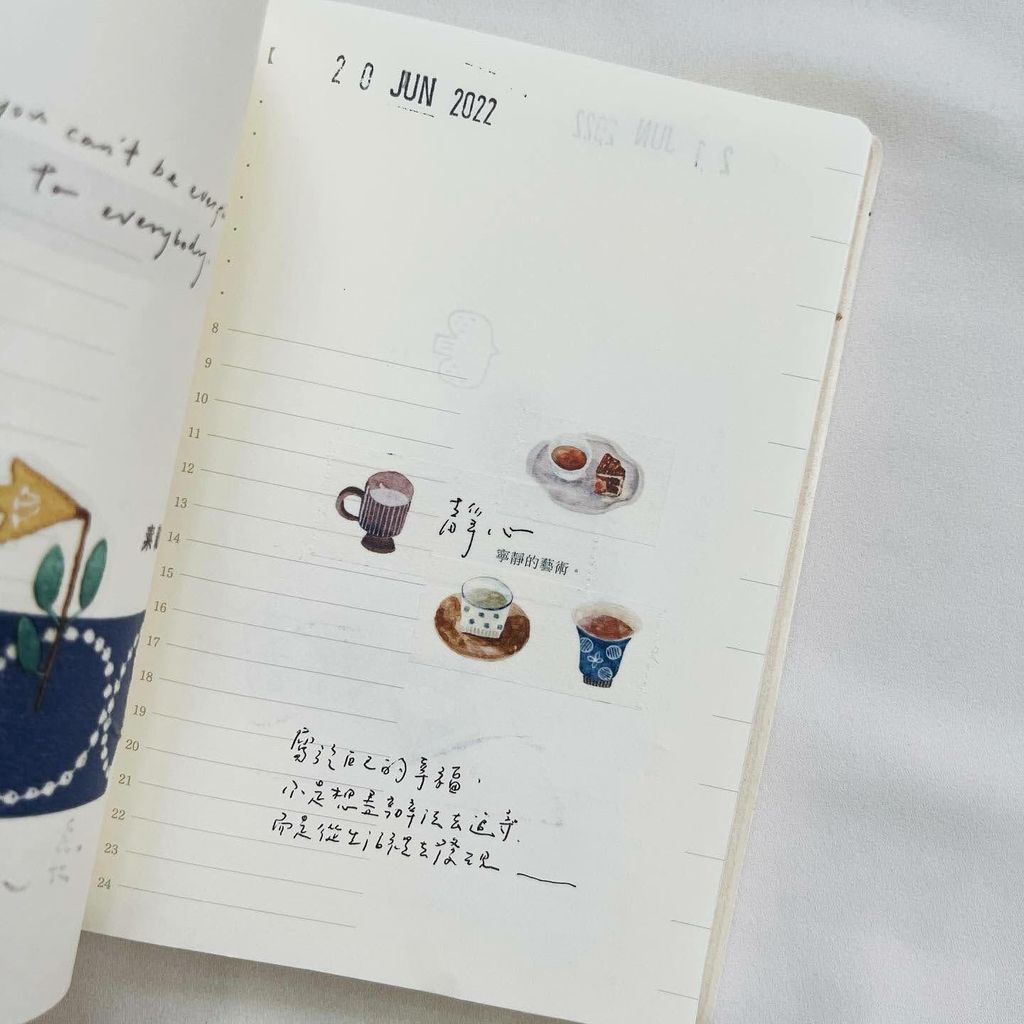 you can't be
to everybody.
20 JUN 2022
21 JUN 2022
8
9
10
11
12
13
14
15
16
17
18
19
20
21
22
23
24
靜心
寧靜的藝術。
屬於自己的幸福,
不是想盡辦法去追尋.
而是從生活裡去發現——